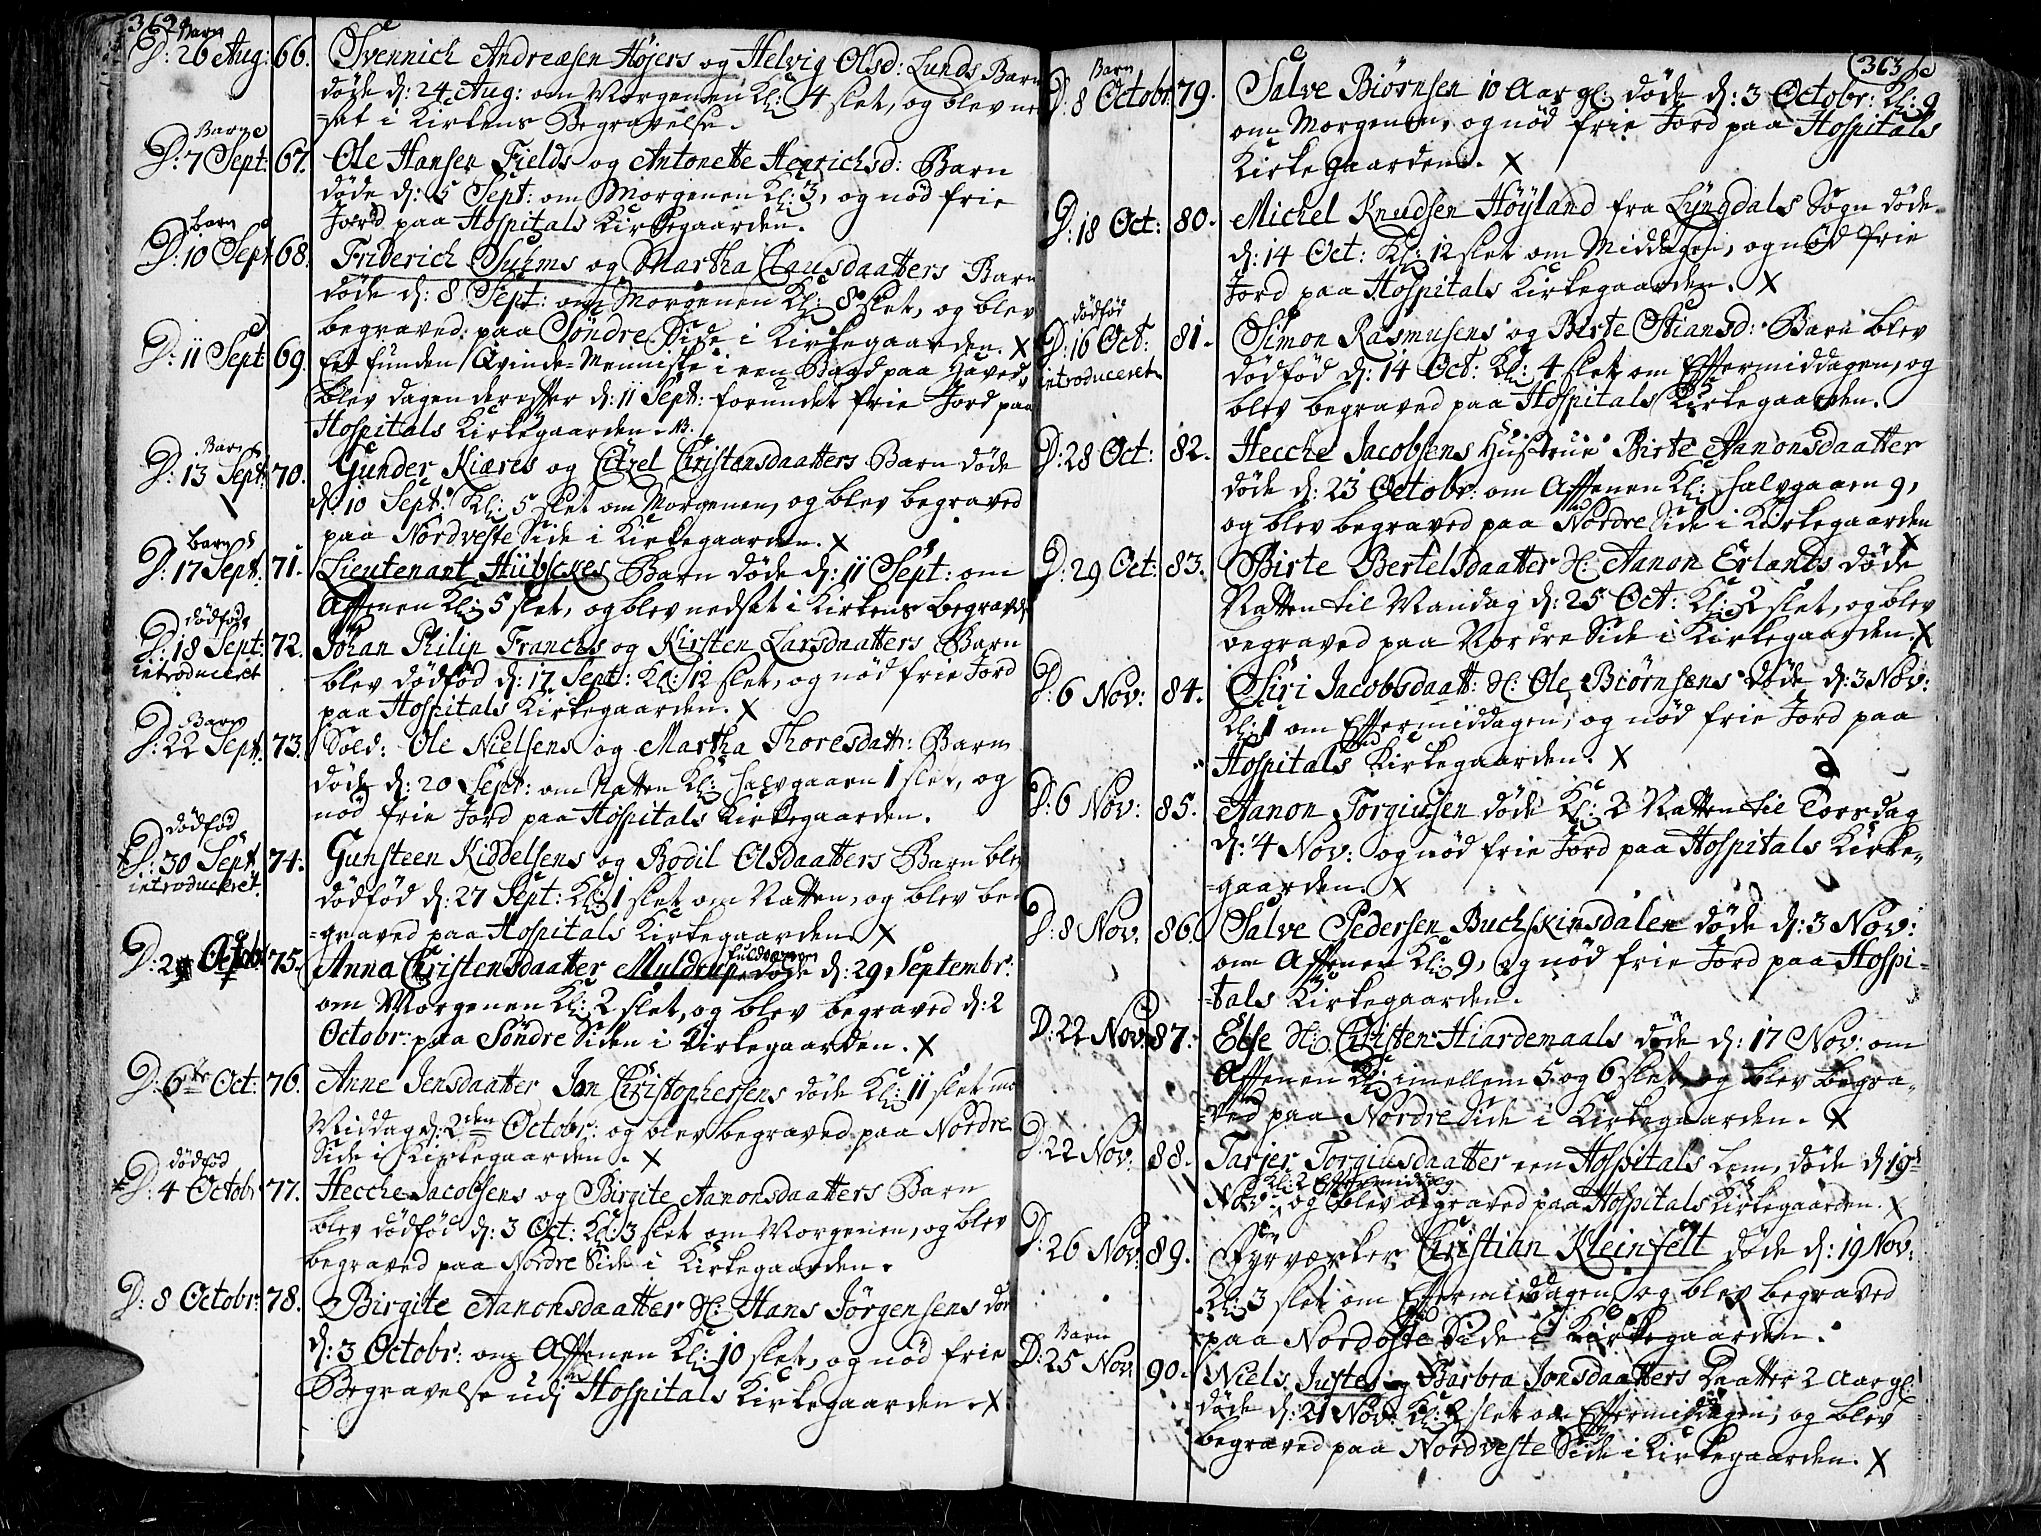 362
Barn
D: 26 Aug: 66. Svennich Andreæsen Højers og Helvig Olsd: Lunds Barn
døde d: 24 Aug: om Morgenen Kl: 4 slet, og blev ned
-sat i Kirkens Begravelse.
Barn
D: 7 Sept: 67. Ole Hansen Fields og Antonette Henrichsd: Barn
døde d: 5 Sept: om Morgenen Kl: 3, og nød frie
Jord paa Hospitals Kirkegaarden.
Barn
D: 10 Sept 68. Friderich Suhms og Martha Clausdaatters Barn
døde d: 8 Sept: om Morgenen Kl: 8 slet, og blev
begraved paa Søndre Side i Kirkegaarden. X
D: 11 Sept 69. Eet funden Qvinde-Menniske i een Baad paa Haved,
blev dagen derefter d: 11 Sept: forundet frie Jord paa
Hospitals Kirkegaarden.
Barn
D: 13 Sept: 70. Gunder Kiæres og Citzel Christensdaatters Barn døde
d: 10 Sept: Kl: 5 slet om Morgenen, og blev begraved
paa Nordveste Side i Kirkegaarden. X
Barn
D: 17 Sept: 71. Lieutenant Hübsckes Barn døde d: 11 Sept: om
Aftenen Kl: 5 slet, og blev nedsat i Kirkens Begravels
dødfød
D: 18 Sept: 72. Johan Philip Franchs og Kirsten Larsdaatters Barn
introduceret
blev dødfød d: 17 Sept: Kl: 12 slet, og nød frie Jord
paa Hospitals Kirkegaarden. X
Barn
D: 22 Sept: 73. Sold: Ole Nielsens og Martha Thoresdatt: Barn
døde d: 20 Sept: om Natten Kl: halvgaaen 1 slet, og
nød frie Jord paa Hospitals Kirkegaarden.
dødfød
D: 30 Sept: 74. Gunsteen Kiddelsens og Bodil Olsdaatters Barn blev
introduceret
dødfød d: 27 Sept: Kl: 1 slet om Natten, og blev be-
-graved paa Hospitals Kirkegaarden X
D: 2 Octobr 75. Anna Christensdaatter Muldrup døde d: 29 Septembr:
om Morgenen Kl: 2 slet, og blev begraved d: 2
Octobr: paa Søndre Siden i Kirkegaarden. X
D: 6te Oct: 76. Anne Jensdaatter Jon Christophersens døde Kl: 11 slet mod
Middag d: 2den Octobr: og blev begraved paa Nordre
Side i Kirkegaarden. X
dødfød
D: 4 Octobr 77. Hecche Jacobsens og Birgite Aanonsdaatters Barn
blev dødfød d: 3 Oct: Kl: 3 slet om Morgenen, og blev
begraved paa Nordre Side i Kirkegaarden.
D: 8 Octobr: 78. Birgite Aanonsdaatter H: Hans Jørgensens døde
d: 3 Octobr: om Aftenen Kl: 10 slet, og nød frie
Begravelse udi Hospitals Kirkegaarden. X
363
Barn
D: 8 Octobr 79. Salve Biørnsen 10 Aar gl: døde d: 3 Octobr: Kl: 9
om Morgenen, og nød frie Jord paa Hospitals
Kirkegaarden. X
D: 18 Oct: 80. Michel Knudsen Høyland fra Lyngdals Sogn døde
d: 14 Oct: Kl: 12 slet om Middagen, og nød frie
Jord paa Hospitals Kirkegaarden. X
dødfød
D: 16 Oct: 81. Simon Rasmusens og Birte Stiansd: Barn blev
introduceret
dødfød d: 14 Oct: Kl: 4 slet om Eftermiddagen, og
blev begraved paa Hospitals Kirkegaarden.
D: 28 Oct: 82. Hecche Jacobsens Hustrue Birte Aanonsdaatter
døde d: 23 Octobr: om Aftenen Kl: halvgaaen 9,
og blev begraved paa Nordre Side i Kirkegaarden
X
D: 29 Oct: 83. Birte Bertelsdaatter H: Aanon Erlands døde
Natten til Mandag d: 25 Oct: Kl: 2 slet, og blev
begraved paa Nordre Side i Kirkegaarden. X
D: 6 Nov: 84. Siri Jacobsdaatt: H: Ole Biørnsens døde d: 3 Nov:
Kl: 1 om Eftermiddagen, og nød frie Jord paa
Hospitals Kirkegaarden. X
D: 6 Nov: 85. Aanon Torgiusen døde Kl: 2 Natten til Torsdag
d: 4 Nov: og nød frie Jord paa Hospitals Kirke-
-gaarden. X
D: 8 Nov: 86. Salve Pedersen Buchskinsdalen døde d: 3 Nov:
om Aftenen Kl: 9, og nød frie Jord paa Hospi-
-tals Kirkegaarden.
D: 22 Nov: 87. Else H: Christen Hiardemaals døde d: 17 Nov: om
Aftenen Kl: imellem 5 og 6 slet, og blev begra-
-ved paa Nordre Side i Kirkegaarden. X
D: 22 Nov: 88. Tarjer Torgiusdaatter een Hospitals Lem, døde d 19de
Kl: 2 Eftermiddag
Nov:, og blev begraved paa Hospitals Kirkegaarden. X
D: 26 Nov: 89. Fyrværker Christian Kleinfelt døde d: 19 Nov:
Kl: 3 slet om Eftermiddagen, og blev begraved
paa Nordoste Side i Kirkegaarden.
Barn
D: 25 Nov: 90. Niels Justes og Barbra Jonsdaatters Daatter 2 Aar gl:
døde d: 21 Nov: Kl: 2 slet om Eftermiddagen, og blev
begraved paa Nordveste Side i Kirkegaarden. X